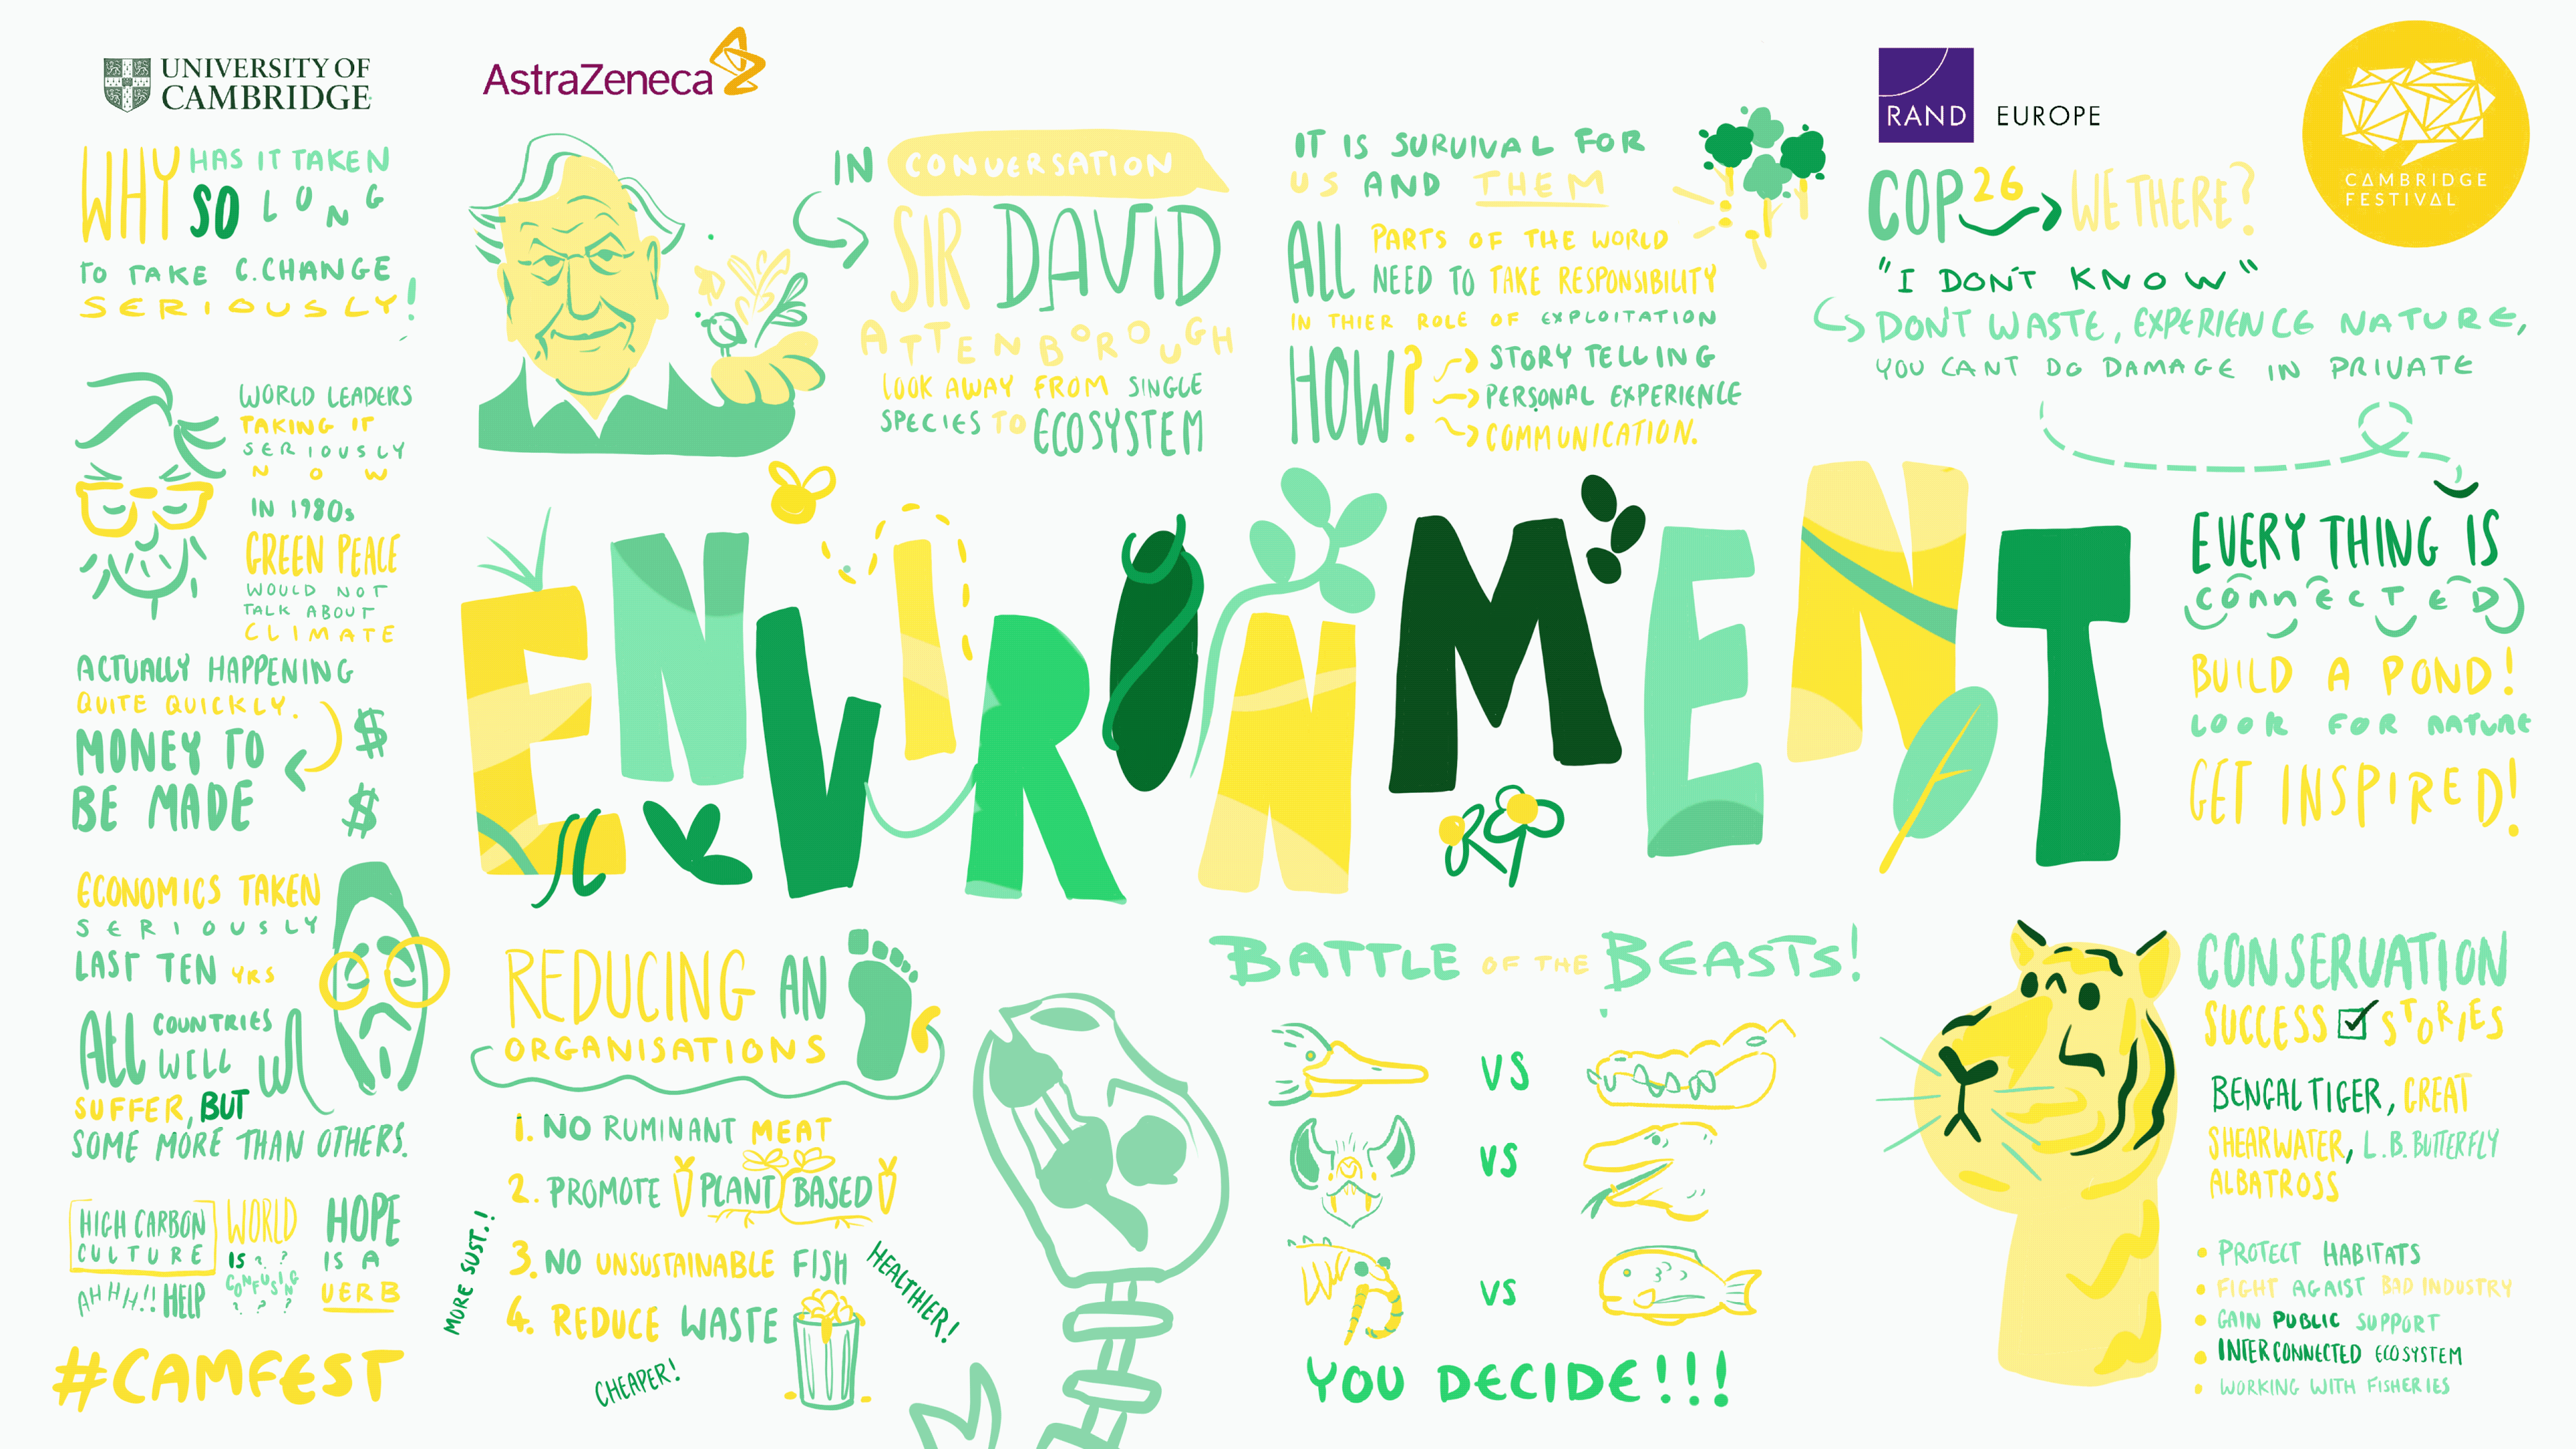 UNIVERSITY OF
CAMBRIDGE
AstraZeneca
RAND EUROPE
CAMBRIDGE
FESTIVAL
WHY HAS IT TAKEN
SO LONG
TO TAKE C.CHANGE
SERIOUSLY!
WORLD LEADERS
TAKING IT
SERIOUSLY
NOW
IN 1980s
GREEN PEACE
WOULD NOT
TALK ABOUT
CLIMATE
ACTUALLY HAPPENING
QUITE QUICKLY.
MONEY TO
BE MADE
$
$
ECONOMICS TAKEN
SERIOUSLY
LAST TEN YRS
ALL COUNTRIES
WILL
SUFFER, BUT
SOME MORE THAN OTHERS.
HIGH CARBON
CULTURE
AHHH!! HELP
WORLD
IS ? ?
CONFUSING
? ? ?
HOPE
IS A
VERB
#CAMFEST
IN CONVERSATION
SIR DAVID
ATTENBOROUGH
LOOK AWAY FROM SINGLE
SPECIES TO ECOSYSTEM
IT IS SURVIVAL FOR
US AND THEM
ALL PARTS OF THE WORLD
NEED TO TAKE RESPONSIBILITY
IN THIER ROLE OF EXPLOITATION
HOW? STORY TELLING
PERSONAL EXPERIENCE
COMMUNICATION.
COP26 WE THERE?
"I DON'T KNOW"
DON'T WASTE, EXPERIENCE NATURE,
YOU CANT DO DAMAGE IN PRIVATE
ENVIRONMENT
EVERY THING IS
CONNECTED
BUILD A POND!
LOOK FOR NATURE
GET INSPIRED!
REDUCING AN
ORGANISATIONS
1. NO RUMINANT MEAT
2. PROMOTE PLANT BASED
3. NO UNSUSTAINABLE FISH
4. REDUCE WASTE
MORE SUST.!
HEALTHIER!
CHEAPER!
BATTLE OF THE BEASTS!
VS
VS
VS
YOU DECIDE!!!
CONSERVATION
SUCCESS STORIES
BENGAL TIGER, GREAT
SHEARWATER, L.B. BUTTERFLY
ALBATROSS
• PROTECT HABITATS
• FIGHT AGAIST BAD INDUSTRY
• GAIN PUBLIC SUPPORT
• INTERCONNECTED ECOSYSTEM
• WORKING WITH FISHERIES